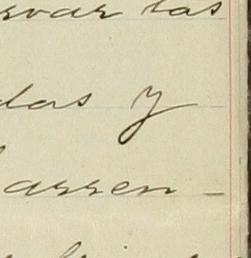 rvar las
das y
arren-